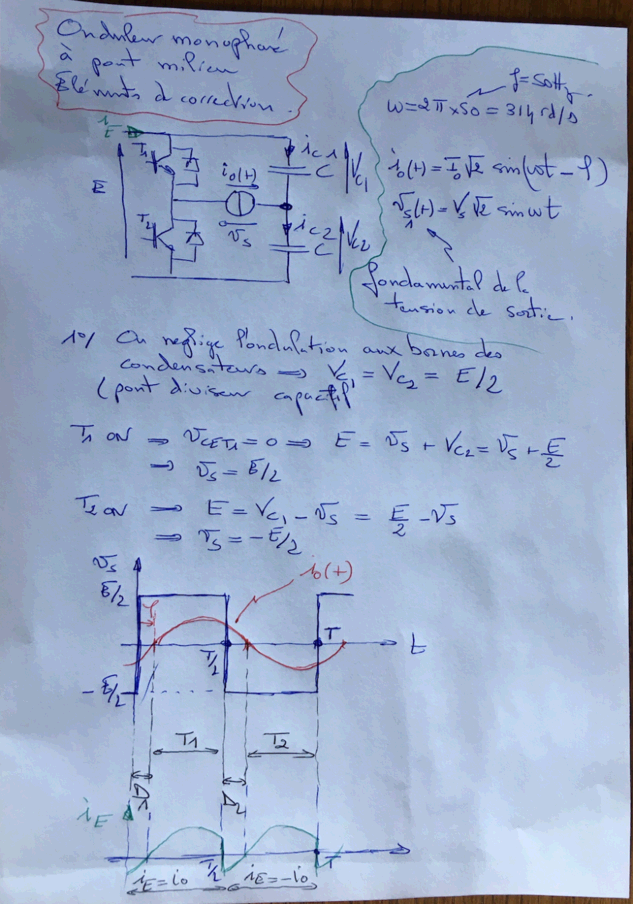 Onduleur monophasé
à pont milieu
Eléments de correction.
f=50Hz.
ω=2π×50=314 rd/s
i₀(t)=I₀√2 sin(ωt-φ)
v_S1(t)=V_S√2 sin ωt
fondamental de la
tension de sortie.
i_E
T1
E
i₀(t)
v_S
T2
i_C1
C
V_C1
i_C2
C
V_C2
1°/ On néglige l'ondulation aux bornes des
condensateurs ⇒ V_C1 = V_C2 = E/2
(pont diviseur capacitif
T1 ON ⇒ v_CET1=0 ⇒ E = v_S + V_C2 = v_S + E/2
⇒ v_S = E/2
T2 ON ⇒ E = V_C1 - v_S = E/2 - v_S
⇒ v_S = -E/2
v_S
i₀(t)
E/2
φ
T/2
T
t
-E/2
T1
T2
D1
D2
i_E
T/2
T
i_E=i₀
i_E=-i₀